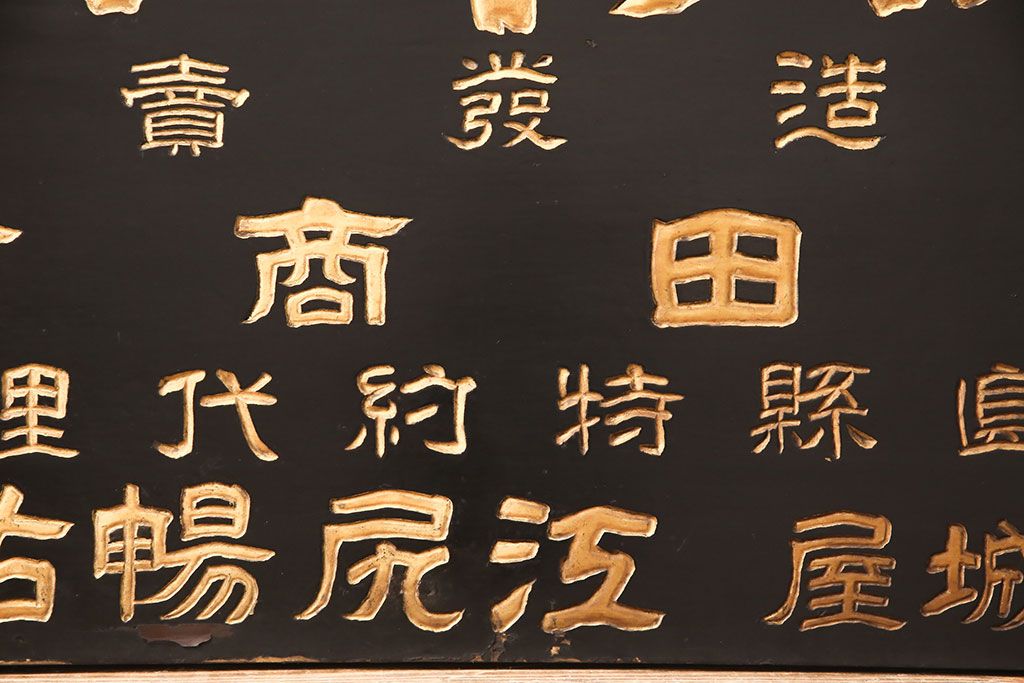 造發賣
田商
縣特約代理
城屋 江尻暢